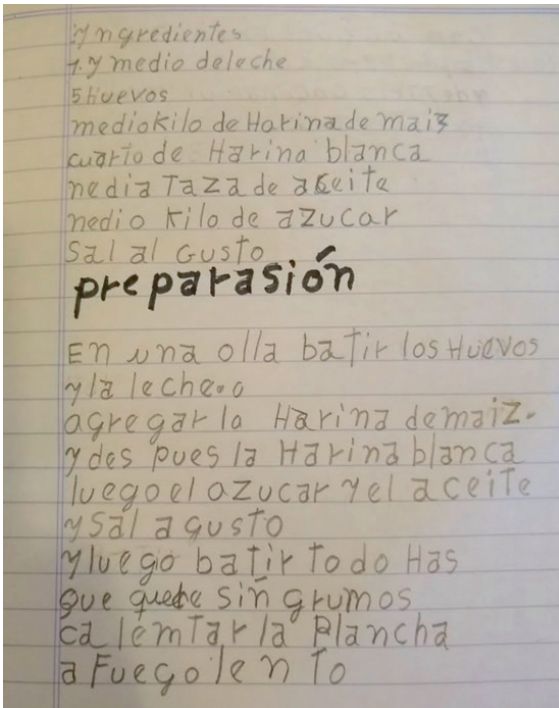 yngredientes
1. y medio deleche
5 Huevos
mediokilo de Harina de maiz
cuarto de Harina blanca
media Taza de aseite
medio kilo de azucar
Sal al Gusto
preparasión
En una olla batir los Huevos
y la leche.o
agregar la Harina demaiz.
y des pues la Harina blanca
luego el azucar y el aceite
y Sal a gusto
y luego batir todo Has
que quede sin grumos
ca lemtar la plancha
a Fuego lento